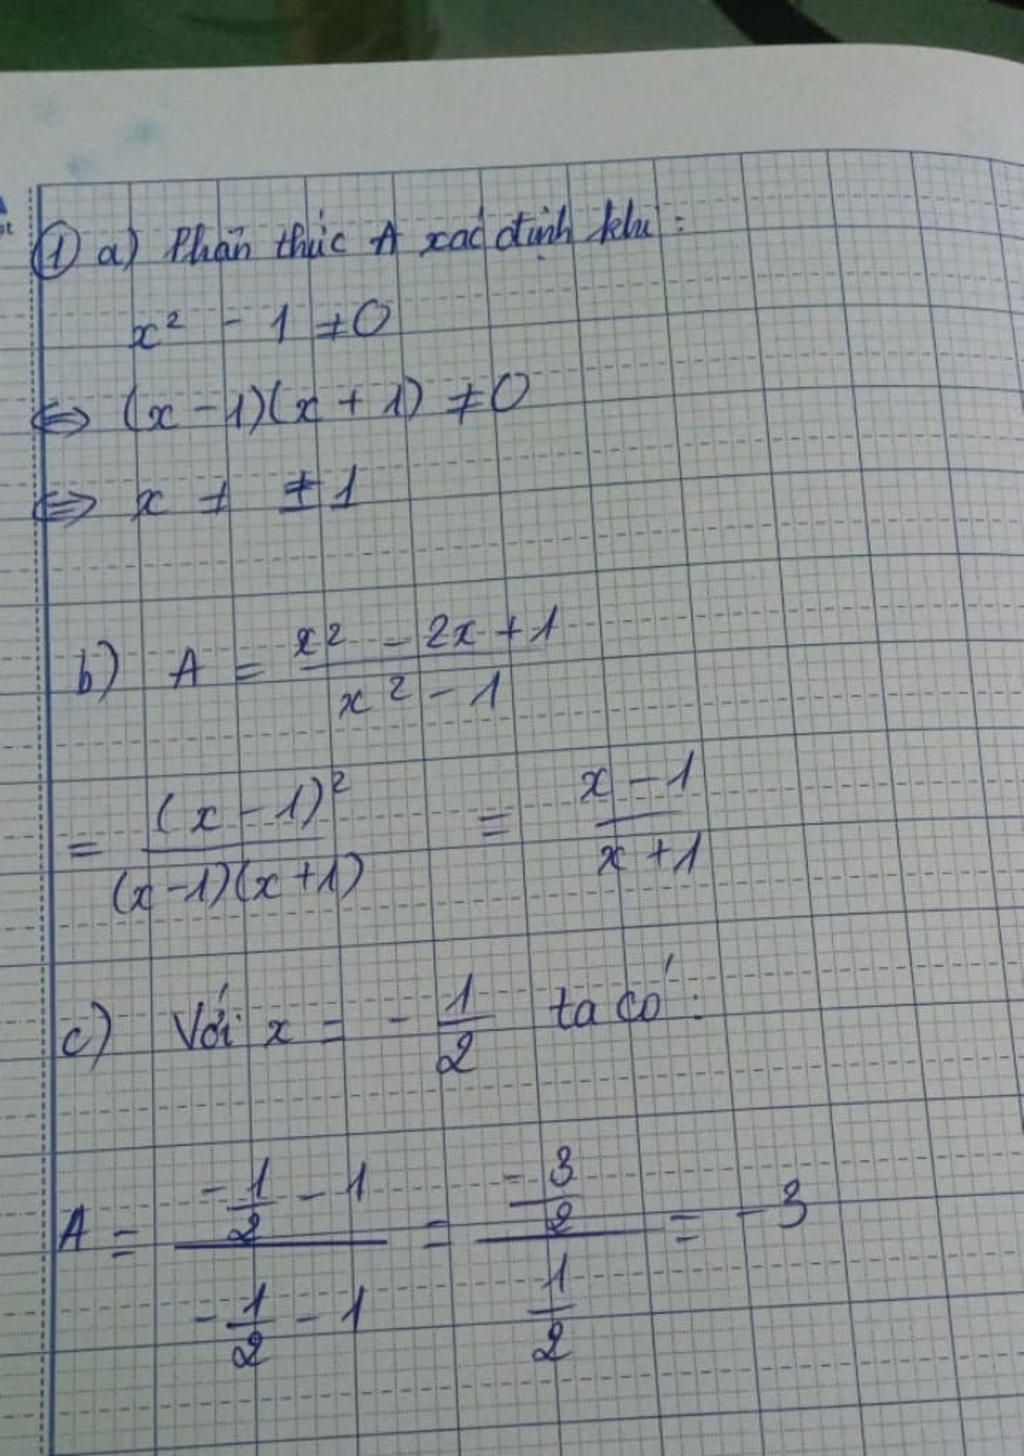 ① a) Phân thức A xác định khi:
x² - 1 ≠ 0
⇔ (x - 1)(x + 1) ≠ 0
⇔ x ≠ ± 1
b) A = (x² - 2x + 1)/(x² - 1)
= (x - 1)²/((x - 1)(x + 1)) = (x - 1)/(x + 1)
c) Với x = - 1/2 ta có:
A = (-1/2 - 1)/(-1/2 - 1) = (-3/2)/(1/2) = - 3